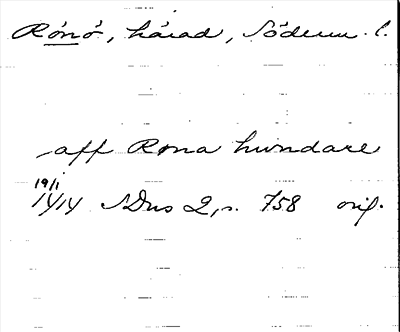 Rönö, härad, Söderm. l.
aff Rona hundare
19/1
1414 SDns 2, s. 758 orig.